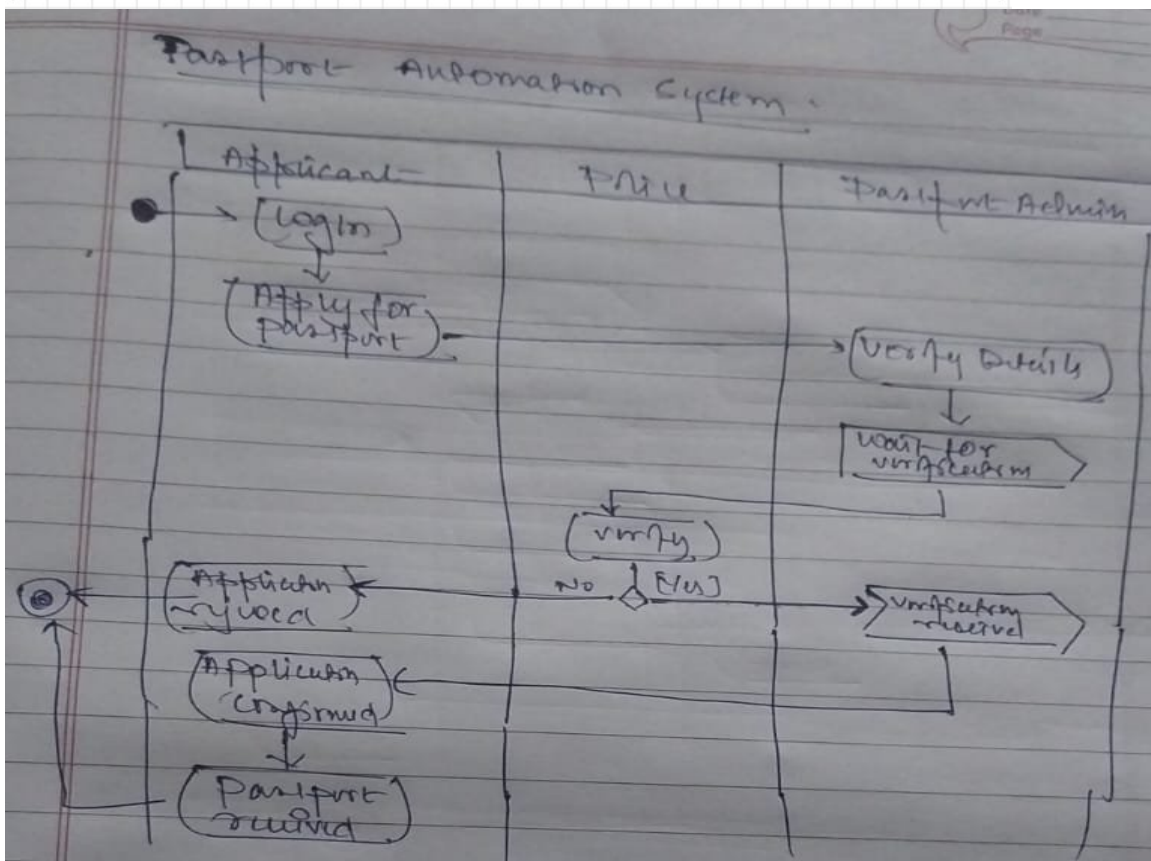 Passport Automation System.
Applicant
Police
Passport Admin
Login
Apply for
passport
Verify Details
wait for
verification
verify
No
[Yes]
Application
verification
receive
Application
Confirmed
Passport
received
Page